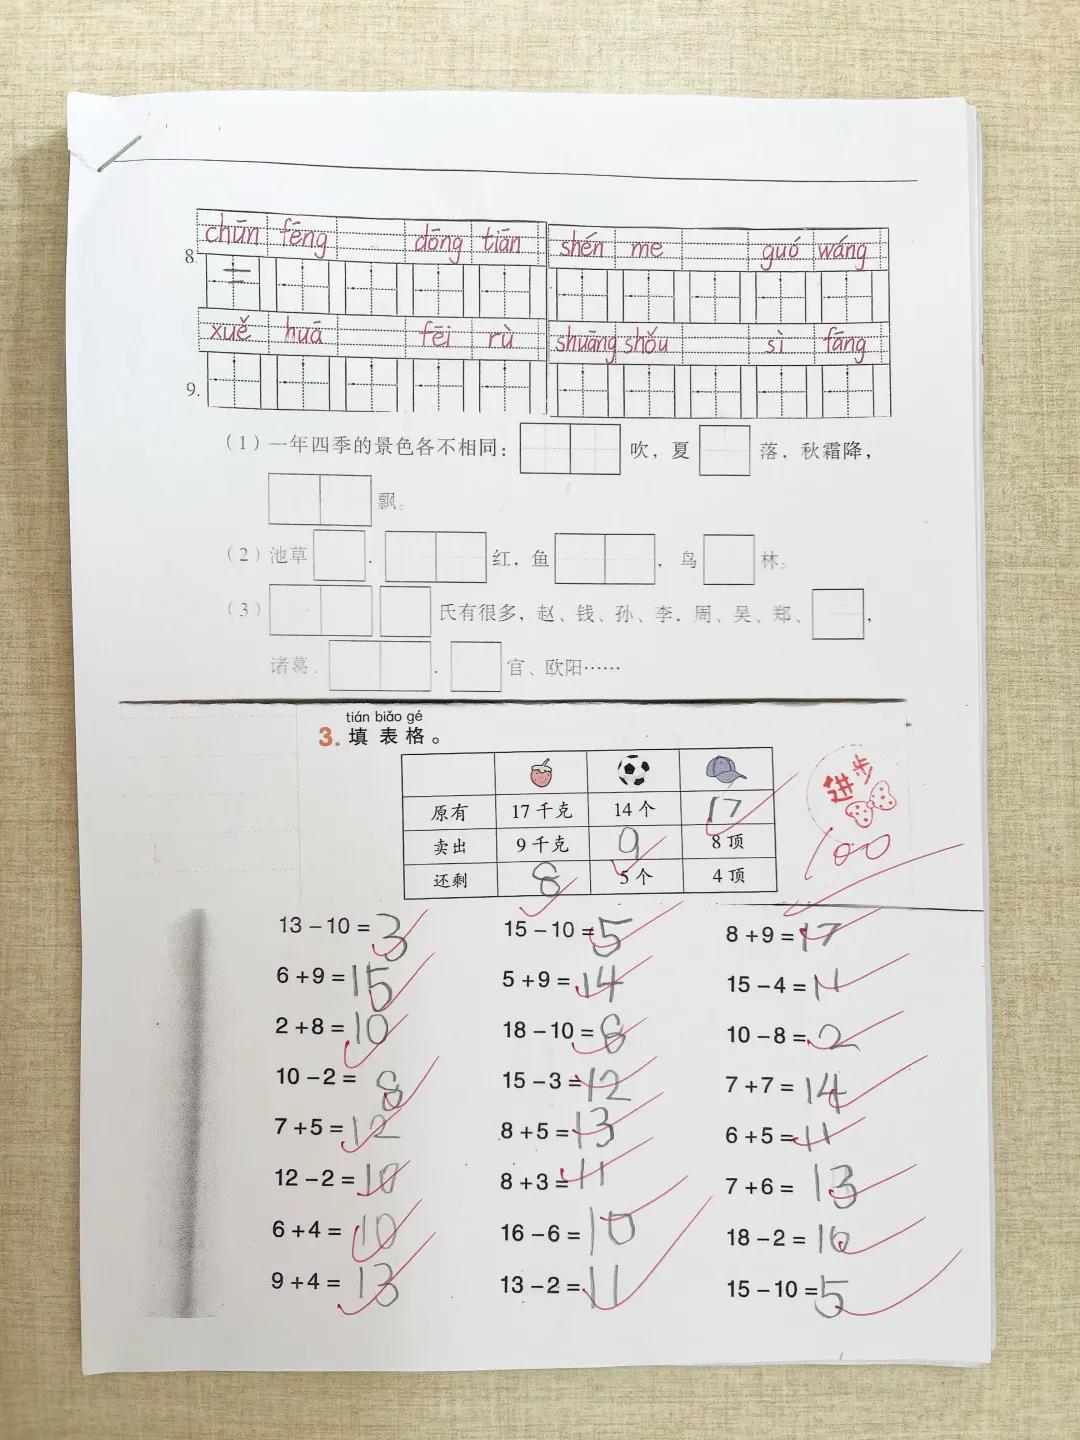 chūn fēng dōng tiān shén me guó wáng
8.
xuě huā fēi rù shuāng shǒu sì fāng
9.
(1)一年四季的景色各不相同: 吹,夏 落,秋霜降,
飘。
(2)池草 , 红,鱼 , 鸟 林。
(3) 氏有很多,赵、钱、孙、李,周、吴、郑、 ,
诸葛、 , 官、欧阳……
tián biǎo gé
3. 填表格。
进步
原有 17千克 14个
卖出 9千克 9 8顶
还剩 8 5个 4顶
100
13-10=3 15-10=5 8+9=17
6+9=15 5+9=14 15-4=11
2+8=10 18-10=8 10-8=2
10-2=8 15-3=12 7+7=14
7+5=12 8+5=13 6+5=11
12-2=10 8+3=11 7+6=13
6+4=10 16-6=10 18-2=16
9+4=13 13-2=11 15-10=5